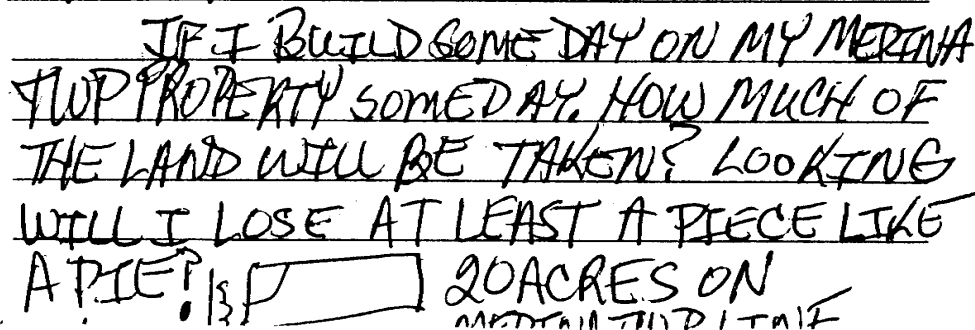 IF I BUILD SOME DAY ON MY MEDINA
TWP PROPERTY SOMEDAY. HOW MUCH OF
THE LAND WILL BE TAKEN? LOOKING
WILL I LOSE AT LEAST A PIECE LIKE
A PIE? 20 ACRES ON
MEDINA TWP LINE